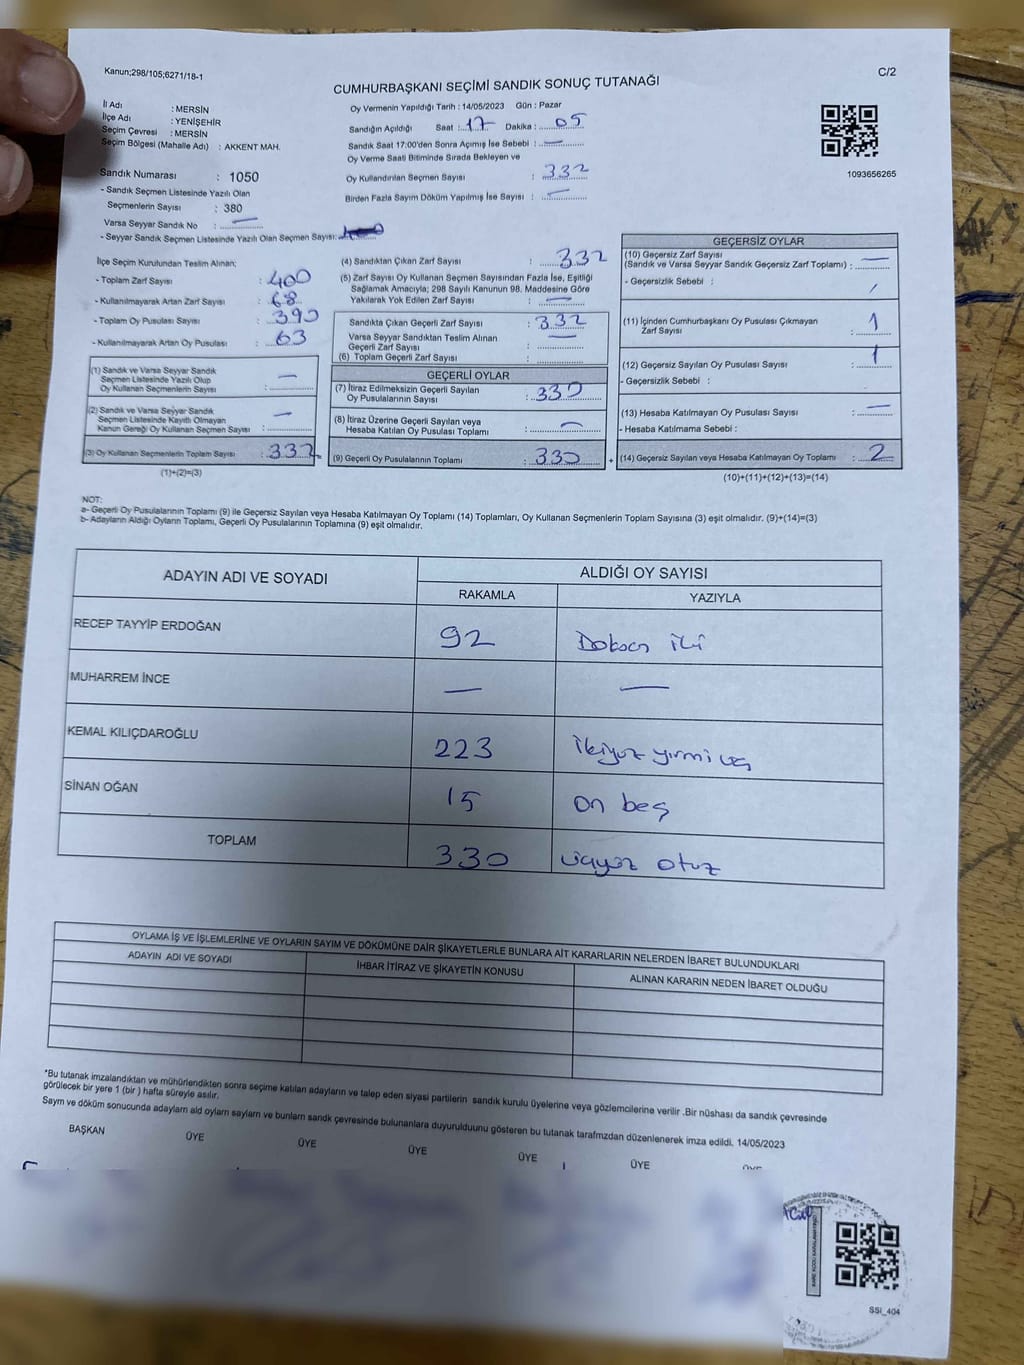 Kanun;298/105;6271/18-1
C/2
CUMHURBAŞKANI SEÇİMİ SANDIK SONUÇ TUTANAĞI
İl Adı : MERSİN
İlçe Adı : YENİŞEHİR
Seçim Çevresi : MERSİN
Seçim Bölgesi (Mahalle Adı) : AKKENT MAH.
Sandık Numarası : 1050
- Sandık Seçmen Listesinde Yazılı Olan
Seçmenlerin Sayısı : 380
Varsa Seyyar Sandık No : —
- Seyyar Sandık Seçmen Listesinde Yazılı Olan Seçmen Sayısı:
Oy Vermenin Yapıldığı Tarih : 14/05/2023 Gün : Pazar
Sandığın Açıldığı Saat : 17 Dakika : 05
Sandık Saat 17:00'den Sonra Açımış İse Sebebi : —
Oy Verme Saati Bitiminde Sırada Bekleyen ve
Oy Kullandırılan Seçmen Sayısı : 332
Birden Fazla Sayım Döküm Yapılmış İse Sayısı : —
1093656265
İlçe Seçim Kurulundan Teslim Alınan;
- Toplam Zarf Sayısı : 400
- Kullanılmayarak Artan Zarf Sayısı : 68
- Toplam Oy Pusulası Sayısı : 390
- Kullanılmayarak Artan Oy Pusulası : 63
(1) Sandık ve Varsa Seyyar Sandık
Seçmen Listesinde Yazılı Olup
Oy Kullanan Seçmenlerin Sayısı : —
(2) Sandık ve Varsa Seyyar Sandık
Seçmen Listesinde Kayıtlı Olmayan
Kanun Gereği Oy Kullanan Seçmen Sayısı : —
(3) Oy Kullanan Seçmenlerin Toplam Sayısı : 332
(1)+(2)=(3)
(4) Sandıktan Çıkan Zarf Sayısı : 332
(5) Zarf Sayısı Oy Kullanan Seçmen Sayısından Fazla İse, Eşitliği
Sağlamak Amacıyla; 298 Sayılı Kanunun 98. Maddesine Göre
Yakılarak Yok Edilen Zarf Sayısı : —
Sandıkta Çıkan Geçerli Zarf Sayısı : 332
Varsa Seyyar Sandıktan Teslim Alınan
Geçerli Zarf Sayısı : —
(6) Toplam Geçerli Zarf Sayısı :
GEÇERLİ OYLAR
(7) İtiraz Edilmeksizin Geçerli Sayılan
Oy Pusulalarının Sayısı : 330
(8) İtiraz Üzerine Geçerli Sayılan veya
Hesaba Katılan Oy Pusulası Toplamı : —
(9) Geçerli Oy Pusulalarının Toplamı : 330
GEÇERSİZ OYLAR
(10) Geçersiz Zarf Sayısı
(Sandık ve Varsa Seyyar Sandık Geçersiz Zarf Toplamı) : —
- Geçersizlik Sebebi :
(11) İçinden Cumhurbaşkanı Oy Pusulası Çıkmayan
Zarf Sayısı : 1
(12) Geçersiz Sayılan Oy Pusulası Sayısı : 1
- Geçersizlik Sebebi :
(13) Hesaba Katılmayan Oy Pusulası Sayısı : —
- Hesaba Katılmama Sebebi :
+ (14) Geçersiz Sayılan veya Hesaba Katılmayan Oy Toplamı : 2
(10)+(11)+(12)+(13)=(14)
NOT:
a- Geçerli Oy Pusulalarının Toplamı (9) ile Geçersiz Sayılan veya Hesaba Katılmayan Oy Toplamı (14) Toplamları, Oy Kullanan Seçmenlerin Toplam Sayısına (3) eşit olmalıdır. (9)+(14)=(3)
b- Adayların Aldığı Oyların Toplamı, Geçerli Oy Pusulalarının Toplamına (9) eşit olmalıdır.
ADAYIN ADI VE SOYADI ALDIĞI OY SAYISI
RAKAMLA YAZIYLA
RECEP TAYYİP ERDOĞAN 92 Doksan iki
MUHARREM İNCE — —
KEMAL KILIÇDAROĞLU 223 ikiyüz yirmi üç
SİNAN OĞAN 15 on beş
TOPLAM 330 üçyüz otuz
OYLAMA İŞ VE İŞLEMLERİNE VE OYLARIN SAYIM VE DÖKÜMÜNE DAİR ŞİKAYETLERLE BUNLARA AİT KARARLARIN NELERDEN İBARET BULUNDUKLARI
ADAYIN ADI VE SOYADI İHBAR İTİRAZ VE ŞİKAYETİN KONUSU ALINAN KARARIN NEDEN İBARET OLDUĞU
*Bu tutanak imzalandıktan ve mühürlendikten sonra seçime katılan adayların ve talep eden siyasi partilerin sandık kurulu üyelerine veya gözlemcilerine verilir .Bir nüshası da sandık çevresinde
görülecek bir yere 1 (bir ) hafta süreyle asılır.
Saym ve döküm sonucunda adaylarn ald oylarn saylarn ve bunlarn sandk çevresinde bulunanlara duyurulduunu gösteren bu tutanak tarafmzdan düzenlenerek imza edildi. 14/05/2023
BAŞKAN ÜYE ÜYE ÜYE ÜYE ÜYE
SSI_404